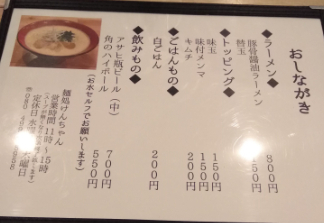 おしながき
◆ラーメン◆
豚骨醤油ラーメン 800円
替玉 150円
◆トッピング◆
味玉 150円
味付メンマ 150円
キムチ 200円
◆ごはんもの◆
白ごはん 200円
◆飲みもの◆
アサヒ瓶ビール(中) 700円
角のハイボール 550円
(お水セルフでお願いします)
麺処けんちゃん
営業時間11時~15時
定休日